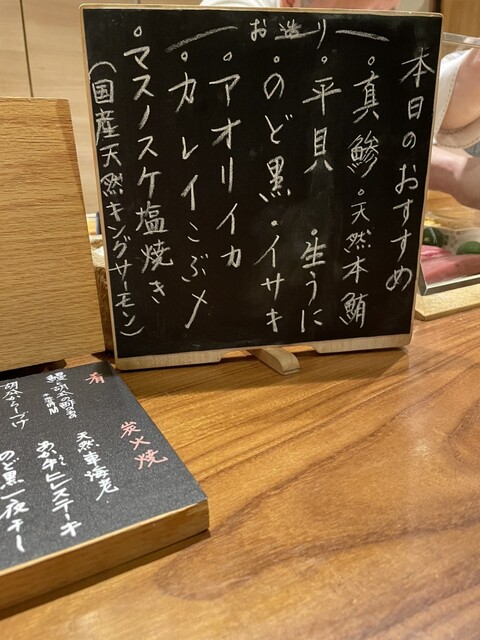 本日のおすすめ
お造り
・真鯵・天然本鮪
・平貝・生うに
・のど黒・イサキ
・アオリイカ
・カレイこぶ〆
・マスノスケ塩焼き
(国産天然キングサーモン)
炭火焼
天然車海老
あか牛ヒレステーキ
のど黒一夜干し
肴